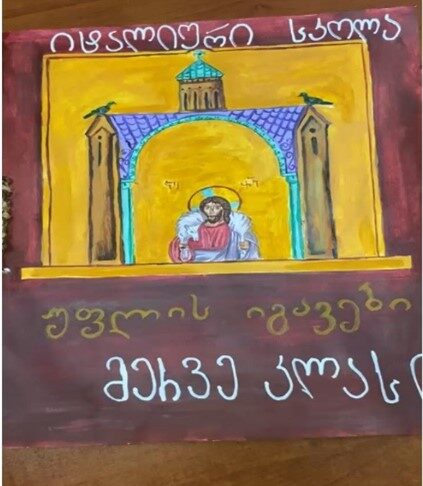 იტალიური სკოლა
უფლის იგავები
მერვე კლას